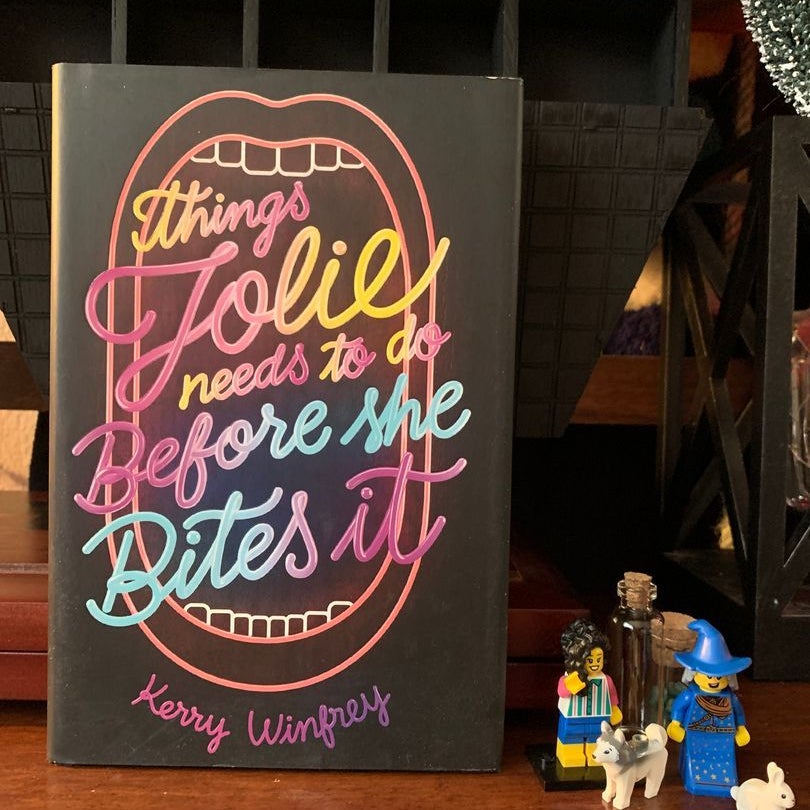 Things
Jolie
needs to do
Before she
Bites it
Kerry Winfrey